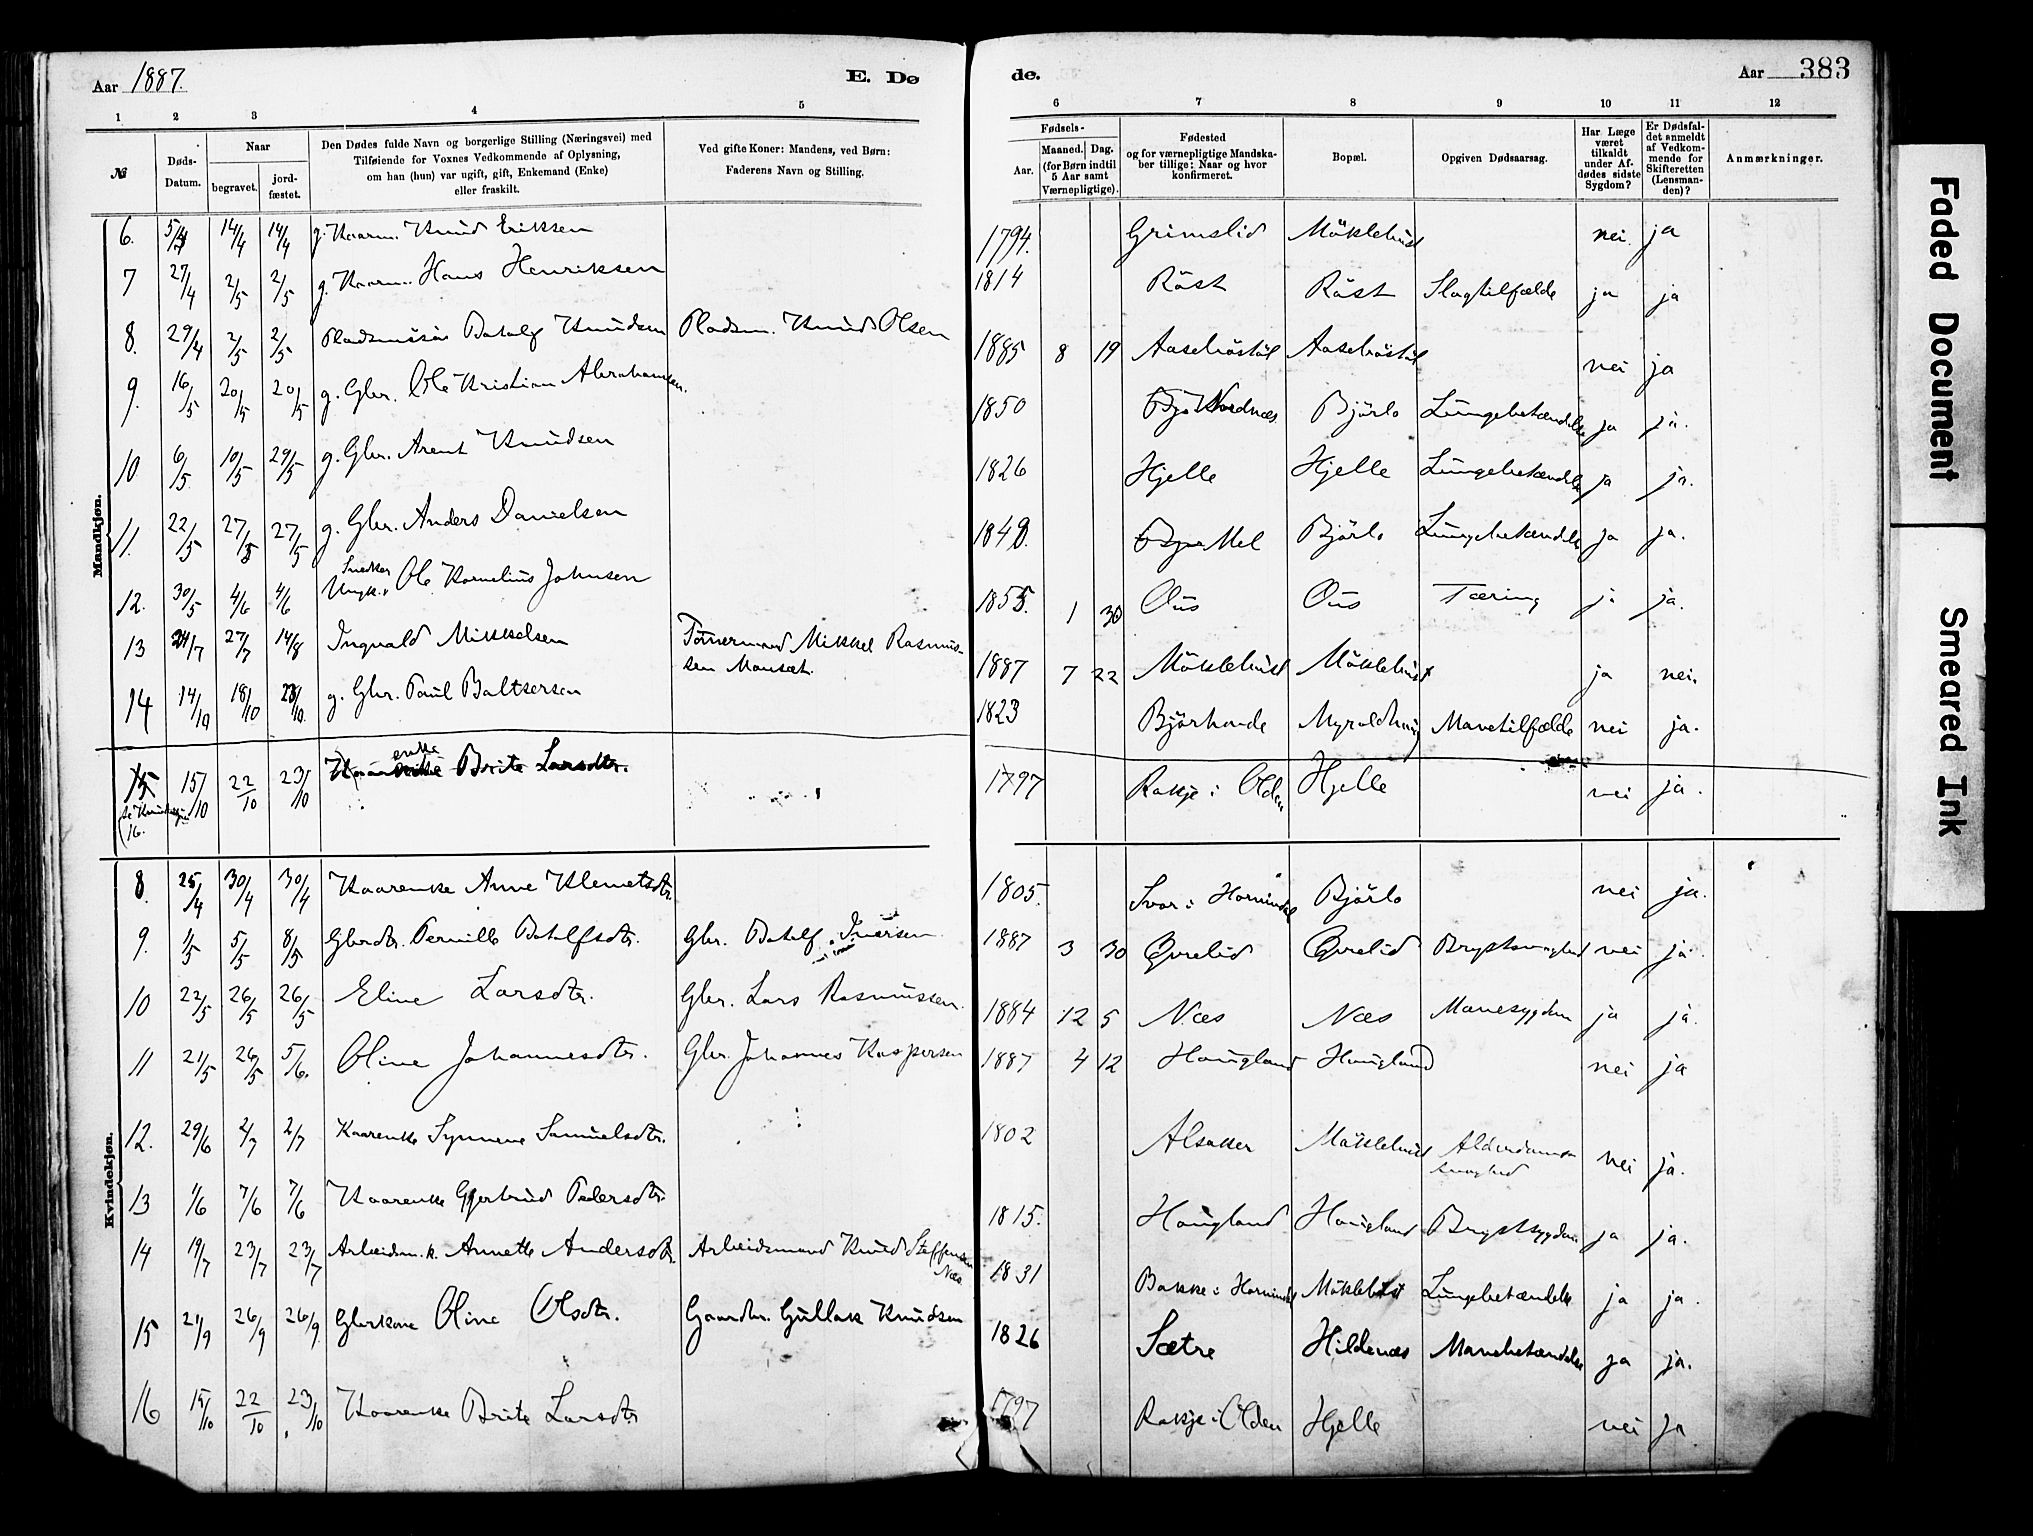 Aar 1887. E. Dø
de. Aar 383
1 2 3 4 5
6 7 8 9 10 11 12
№ Døds-Datum. Naar begravet. jordfæstet. Den Dødes fulde Navn og borgerlige Stilling (Næringsvei) med Tilføiende for Voxnes Vedkommende af Oplysning, om han (hun) var ugift, gift, Enkemand (Enke) eller fraskilt. Ved gifte Koner: Mandens, ved Børn: Faderens Navn og Stilling.
Fødsels- Aar. Maaned. Dag. (for Børn indtil 5 Aar samt Værnepligtige). Fødested og for værnepligtige Mandskaber tillige: Naar og hvor konfirmeret. Bopæl. Opgiven Dødsaarsag. Har Læge været tilkaldt under Afdødes sidste Sygdom? Er Dødsfaldet anmeldt af Vedkommende for Skifteretten (Lensmanden)? Anmærkninger.
Mandkjøn.
6. 5/4 14/4 14/4 g. Kaarm. Knud Eriksen 1794. Grimslid Möklebust nei. ja
7 27/4 2/5 2/5 g. Kaarm. Hans Henriksen 1814 Röst Röst Slagtilfælde ja ja
8. 29/4 2/5 2/5 Batalf Knudsen Pladsm. Knud Olsen 1885 8 19 nei ja
9. 16/5 20/5 20/5 g. Gbr. Ole Kristian Abrahamsen. 1850 Nordnæs Björlo Lungebetændelse ja ja.
10 6/5 10/5 29/5 g. Gbr. Arent Knudsen 1826 Hjelle Hjelle Lungebetændelse ja ja.
11. 22/5 27/5 27/5 g. Gbr. Anders Danielsen Mel Björlo Lungebetændelse ja ja.
12. 30/5 4/6 4/6 Ungk. Snedker Ole Kornelius Johnsen 1855. 1 30 Ous Ous Tæring ja ja.
13 24/7 27/7 14/8 Ingvald Mikkelsen Tömermand Mikkel Rasmus-
sen 1887 7 22 Möklebust Möklebust ja nei.
14 14/10 18/10 23/10. g. Gbr. Paul Baltsersen 1823 Björhovde Myroldhaug Mavetilfælde nei ja.
15 15/10 22/10 23/10 enke Brite Larsdtr. 1797 Rakje i Olden Hjelle nei ja.
(se Kvindekjøn
16.
Kvindekjøn.
8. 25/4 30/4 30/4 Kaarenke Anne Klemetsdtr. 1805. Svor i Hornindal Björlo nei ja.
9. 1/5 5/5 8/5 Gbrdtr. Pernille Batalfsdtr. Gbr. Batalf Iversen 1887 3 30 Qvrelid Qvrelid Brystsvaghed nei ja.
10 22/5 26/5 26/5 Eline Larsdtr. Gbr. Lars Rasmussen. 1884 12 5 Næs Næs Mavesygdom ja ja.
11 21/5 26/5 5/6. Oline Johannesdtr. Gbr. Johannes Kaspersen 1887 4 12 Hougland Hougland nei ja
12. 29/6 2/7 2/7 Kaarenke Synneve Samuelsdtr. 1802 Alsaker Möklebust Alderdoms-
svaghed nei ja.
13 1/6 7/6 7/6 Kaarenke Gjertrud Pedersdtr. 1815. Hougland Hougland Brystsygdom ja ja.
14 19/7 23/7 23/7 Arbeidsm.k. Annette Andersdtr. Arbeidsmand Knud Steffensen
Næs 1831 Bakke i Hornindal Möklebust Lungebetændelse ja ja.
15 21/9 26/9 26/9. Gbrkone Oline Olsdtr. Gaardbr. Gullak Knudsen 1826 Sætre Hildenæs Mavebetændelse ja ja.
16 15/10 22/10 23/10 Kaarenke Brite Larsdtr. 1797 Rakje i Olden Hjelle nei ja
Faded Document
Smeared Ink